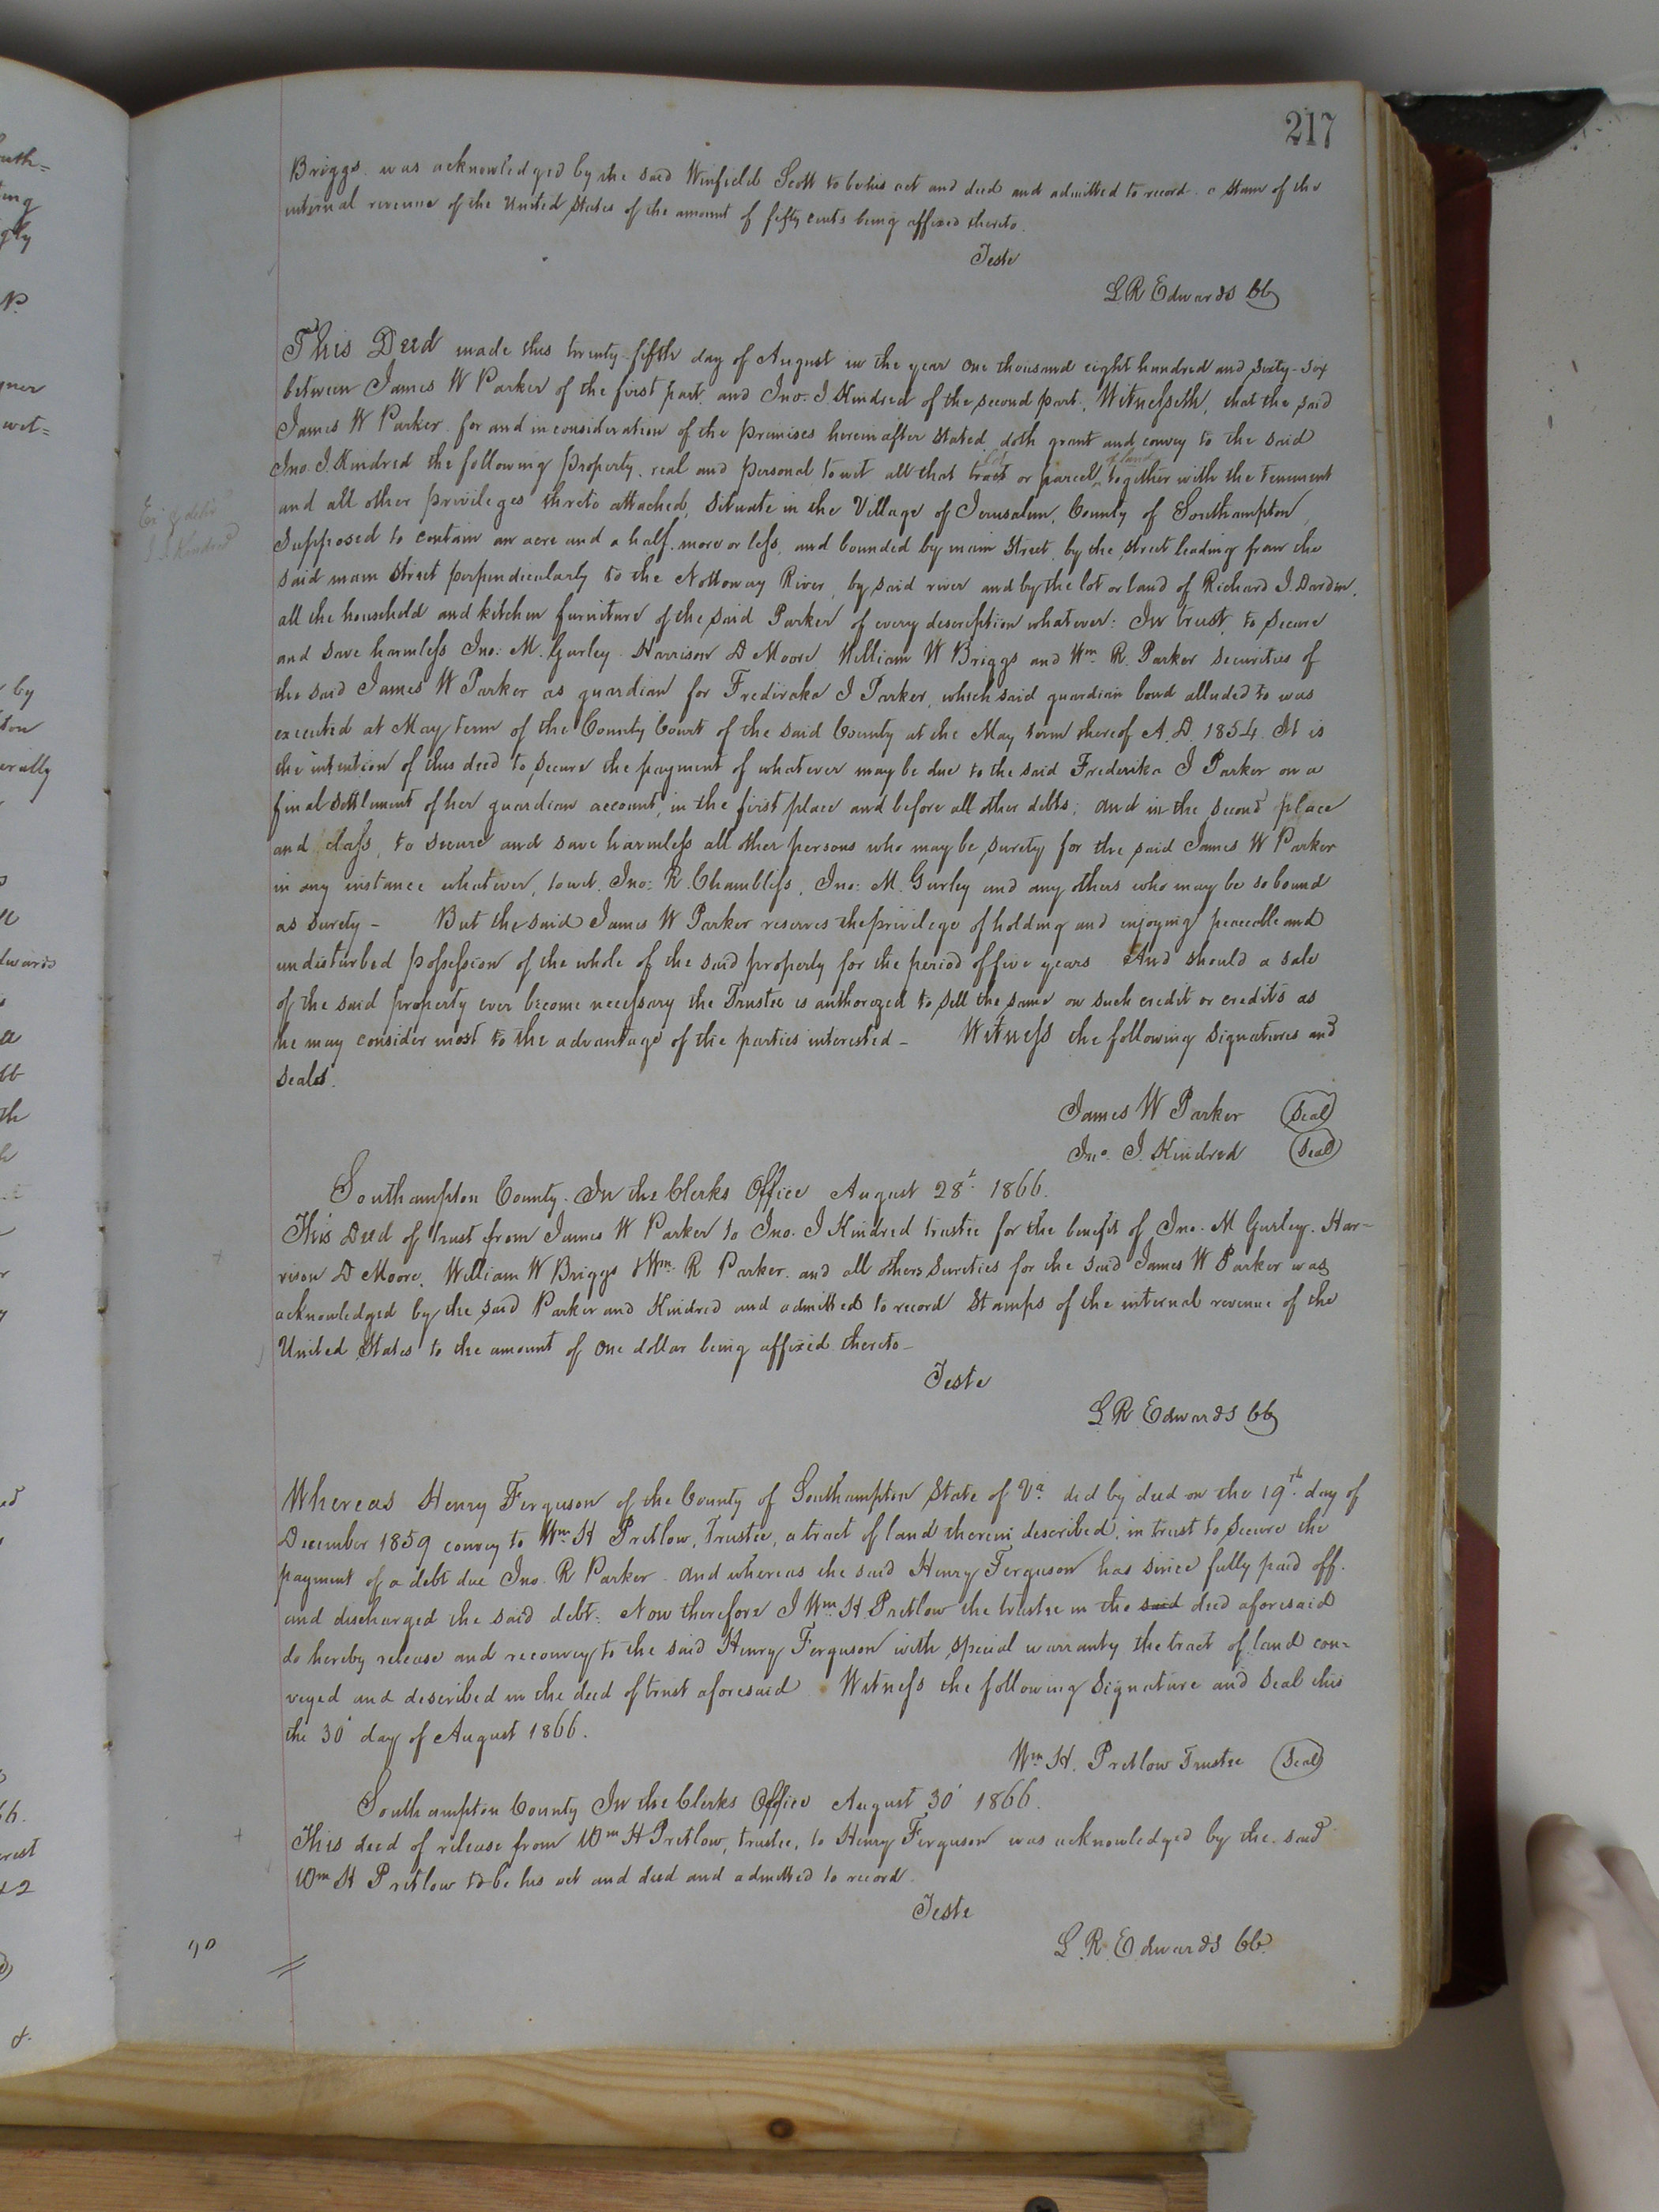 217
Briggs. was acknowledged by the said Winfield Scott to be his act and deed and admitted to record. a Stam of the
internal revenue of the United States of the amount of fifty cents being affixed thereto.
Teste
L R Edwards CC
This Deed made this twenty-fifth day of August in the year One thousand eight hundred and sixty-six
between James W Parker of the first part and Jno. J. Kindred of the second part, Witnesseth, that the said
James W Parker for and in consideration of the premises hereinafter stated doth grant and convey to the said
Jno. J. Kindred the following property, real and personal towit all that lot tract or parcel of land together with the tenement
and all other privileges thereto attached, situate in the Village of Jerusalem, County of Southampton
Supposed to contain an acre and a half more or less, and bounded by main Street, by the street leading from the
said main street perpendicularly to the Nottoway River, by said river and by the lot or land of Richard J. Dardin,
all the household and kitchen furniture of the said Parker of every description whatever: In trust, to secure
and save harmless Jno: M. Gurley Harrison D Moore William W Briggs and Wm. R. Parker securities of
the said James W Parker as guardian for Frederaka J Parker, which said guardian bond alluded to was
executed at May term of the County Court of the said County at the May term thereof A.D. 1854. It is
the intention of this deed to secure the payment of whatever may be due to the said Frederika J Parker on a
final settlement of her guardian account, in the first place and before all other debts; and in the second place
and class, to secure and save harmless all other persons who may be surety for the said James W Parker
in any instance whatever, towit. Jno: R. Chambliss, Jno: M. Gurley and any others who may be so bound
as surety - But the said James W Parker reserves the privilege of holding and enjoying peaceable and
undisturbed possession of the whole of the said property for the period of five years And should a sale
of the said property ever become necessary the Trustee is authorized to sell the same on such credit or credits as
he may consider most to the advantage of the parties interested - Witness the following signatures and
seals.
James W Parker (Seal)
Jno. J. Kindred (Seal)
Southampton County. In the Clerks Office August 28t 1866.
This Deed of trust from James W Parker to Jno. J Kindred trustee for the benefit of Jno. M Gurley. Har-
rison D Moore, William W Briggs & Wm. R Parker. and all others sureties for the said James W Parker was
acknowledged by the said Parker and Kindred and admitted to record Stamps of the internal revenue of the
United States to the amount of One dollar being affixed thereto -
Teste
L R. Edwards CC
Whereas Henry Ferguson of the County of Southampton State of Va. did by deed on the 19th. day of
December 1859 convey to Wm. H Pretlow, Trustee, a tract of land therein described, in trust to secure the
payment of a debt due Jno. R Parker. and whereas the said Henry Ferguson has since fully paid off.
and discharged the said debt: Now therefore I Wm. H. Pretlow the trustee in the said deed aforesaid
do hereby release and reconvey to the said Henry Ferguson with special warranty the tract of land con-
veyed and described in the deed of trust aforesaid Witness the following Signature and Seal this
the 30 day of August 1866.
Wm H. Pretlow Trustee (Seal)
Southampton County In the Clerks Office August 30 1866.
This deed of release from Wm H Pretlow, trustee, to Henry Ferguson was acknowledged by the said
Wm H Pretlow to be his act and deed and admitted to record.
Teste
L. R. Edwards CC.